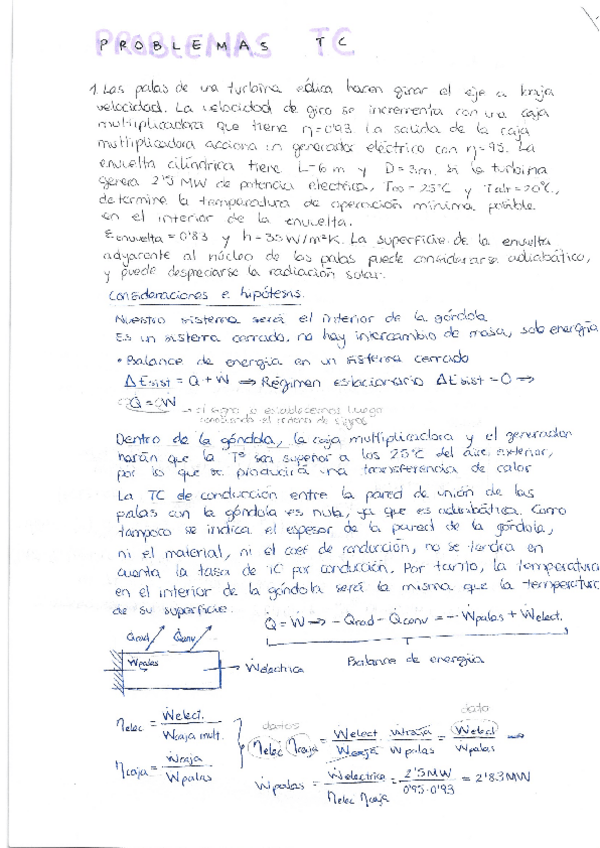 PROBLEMAS TC
1. Las palas de una turbina eólica hacen girar el eje a baja
velocidad. La velocidad de giro se incrementa con una caja
multiplicadora que tiene η=0'93. La salida de la caja
multiplicadora acciona un generador eléctrico con η=95. La
envuelta cilíndrica tiene L=6m y D=3m. Si la turbina
genera 2'5 MW de potencia electrica, T∞=25°C y Talr=20°C,
determine la temperatura de operación mínima posible
en el interior de la envuelta.
Eenvuelta=0'83 y h=35W/m²K. La superficie de la envuelta
adyacente al núcleo de las palas puede considerarse adiabático,
y puede despreciarse la radiación solar.
Consideraciones e hipótesis.
Nuestro sistema será el interior de la góndola
Es un sistema cerrado, no hay intercambio de masa, solo energía
• Balance de energía en un sistema cerrado
ΔEsist = Q + W → Régimen estacionario ΔEsist = 0 ⇒
Q = W → el signo lo establecemos luego
Dentro de la góndola, la caja multiplicadora y el generador
harán que la Tª sea superior a los 25°C del aire exterior,
por lo que se producirá una transferencia de calor
La TC de conducción entre la pared de unión de las
palas con la góndola es nula, ya que es adiabática. Como
tampoco se indica el espesor de la pared de la góndola,
ni el material, ni el coef de conducción, no se tendra en
cuenta la tasa de TC por conducción. Por tanto, la temperatura
en el interior de la góndola será la misma que la temperatura
de su superficie.
Q̇ = Ẇ → - Q̇rad - Q̇conv = - Ẇpalas + Ẇelect.
Balance de energía
Q̇rad Q̇conv
Ẇpalas → Ẇelectrica
ηelec = Ẇelect. / Ẇcaja mult.
ηcaja = Ẇcaja / Ẇpalas
datos dato
ηelec ηcaja = Ẇelect / Ẇcaja · Ẇcaja / Ẇpalas = Ẇelect / Ẇpalas ⇒
Ẇpalas = Ẇelectrica / ηelec ηcaja = 2'5MW / 0'95·0'93 = 2'83 MW